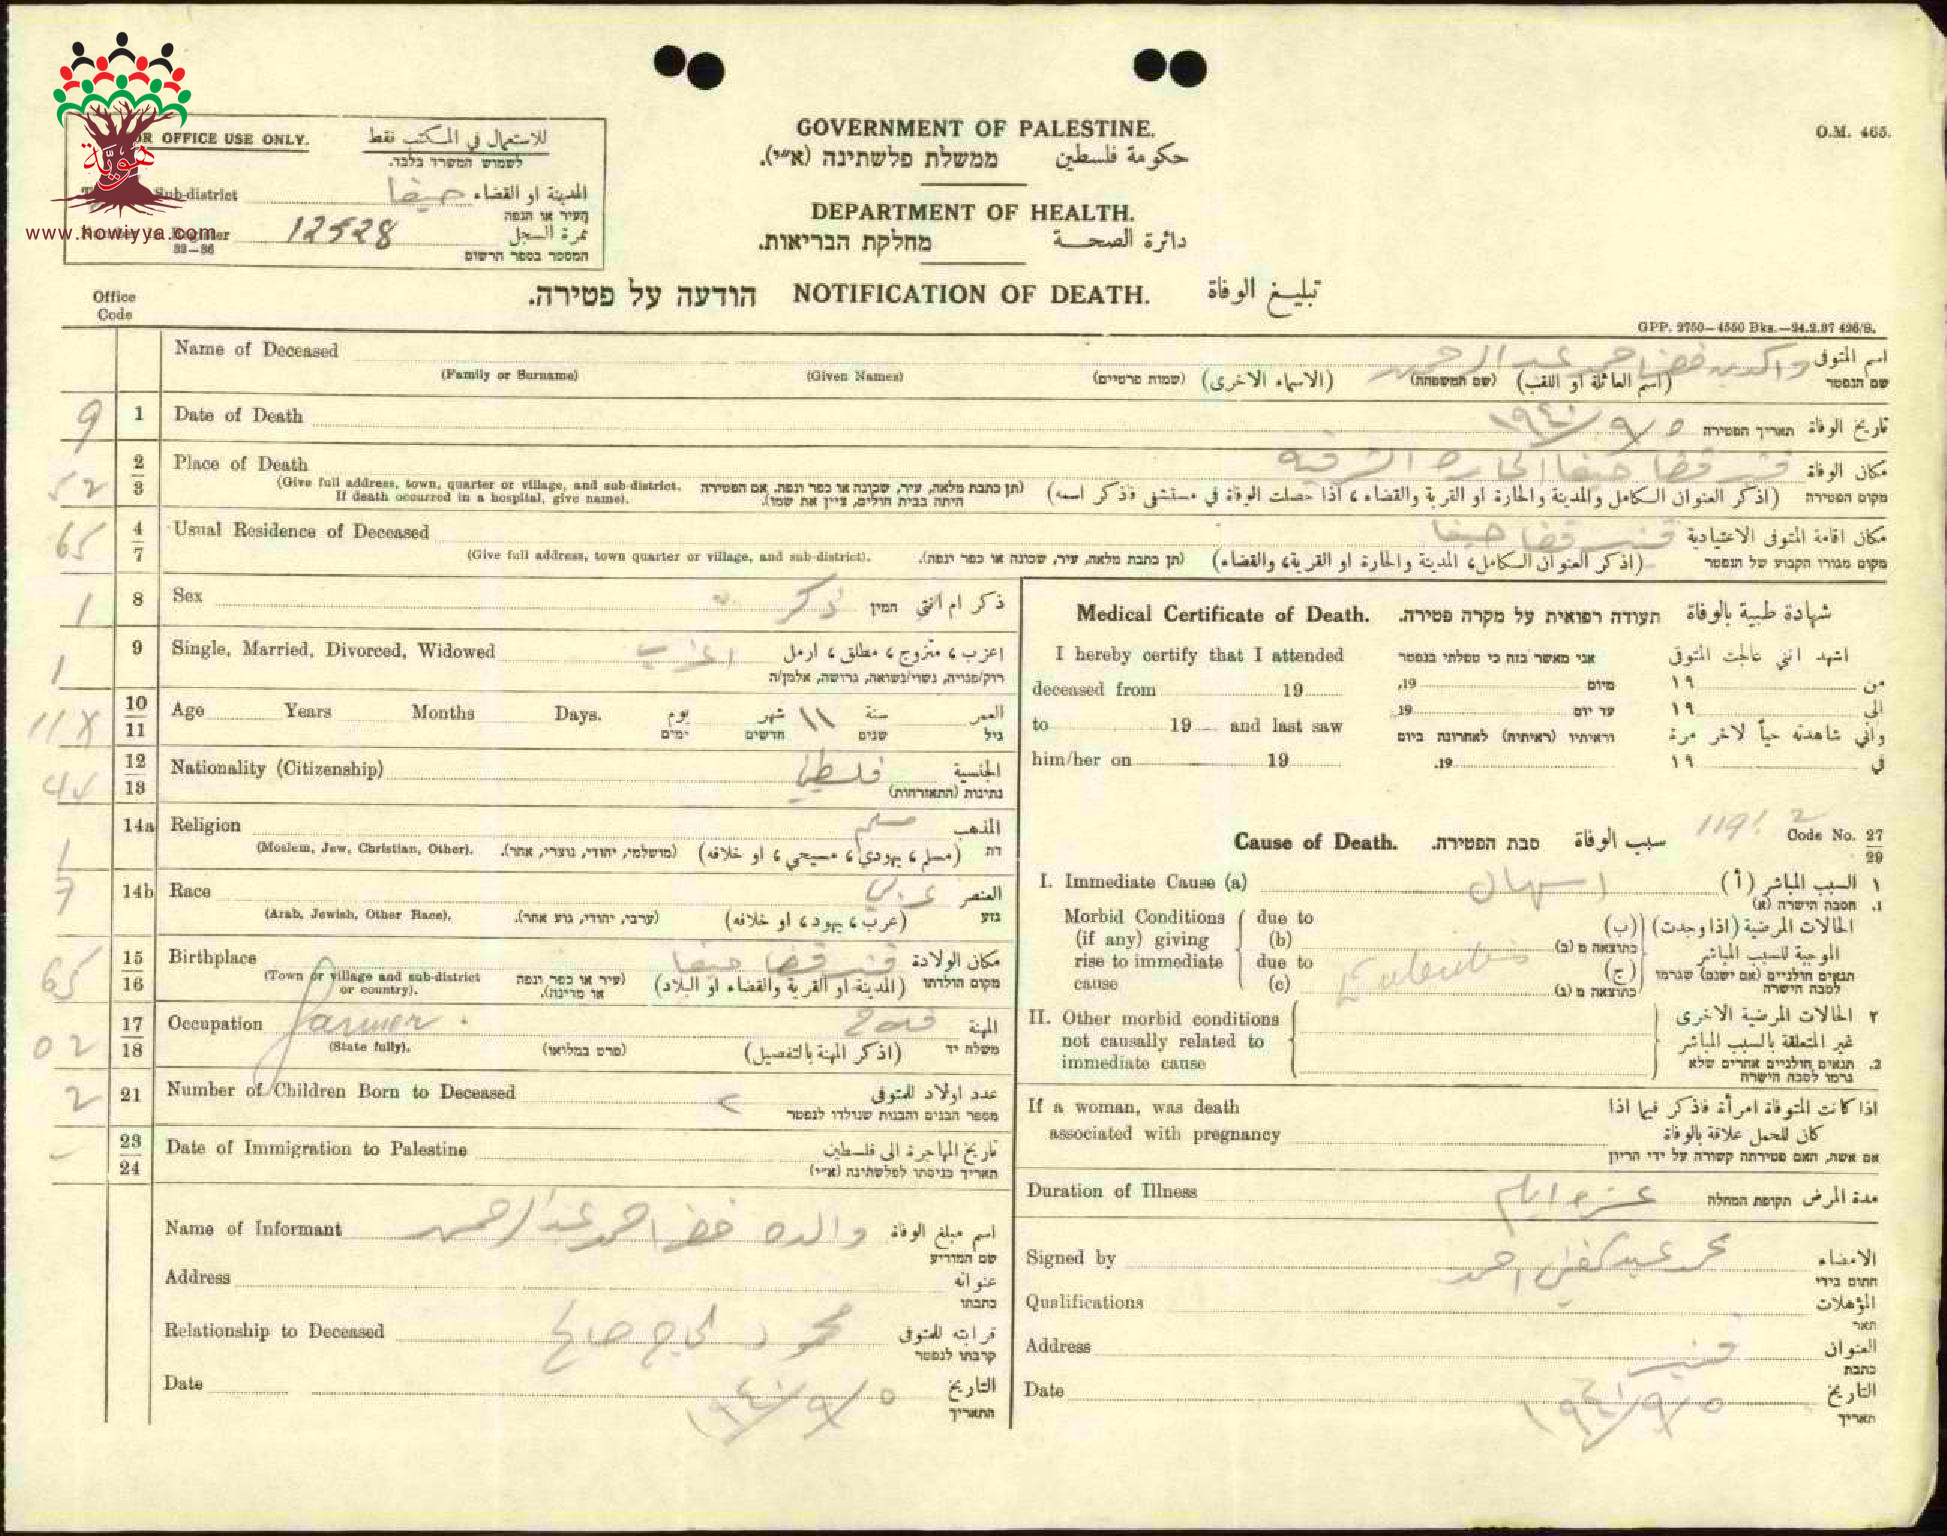 هويّة
www.howiyya.com
FOR OFFICE USE ONLY. للاستعمال في المكتب فقط
לשמוש המשרד בלבד.
Sub-district حيفا المدينة او القضاء
העיר או הנפה
Number in Register 12528 نمرة السجل
33—36 המספר בספר הרשום
O.M. 465.
GOVERNMENT OF PALESTINE.
ממשלת פלשתינה (א״י). حكومة فلسطين
DEPARTMENT OF HEALTH.
מחלקת הבריאות. دائرة الصحة
הודעה על פטירה. NOTIFICATION OF DEATH. تبليغ الوفاة
Office
Code
GPP. 2750—4550 Bks.—24.2.37 426/S.
Name of Deceased احمد عبد الرحمن اسم المتوفى
(Family or Surname) (Given Names) (שמות פרטיים) (الاسماء الاخرى) (שם המשפחה) (اسم العائلة او اللقب) שם הנפטר
9 1 Date of Death ١٩٤٠/٩/٥ תאריך הפטירה تاريخ الوفاة
52 2 3 Place of Death قنير قضا حيفا الحارة الشرقية مكان الوفاة
(Give full address, town, quarter or village, and sub-district. If death occurred in a hospital, give name). (תן כתבת מלאה, עיר, שכונה או כפר ונפה. אם הפטירה היתה בבית חולים, ציין את שמו). (اذكر العنوان الكامل والمدينة والحارة او القرية والقضاء، اذا حصلت الوفاة في مستشفى فاذكر اسمه) מקום הפטירה
65 4 7 Usual Residence of Deceased قنير قضا حيفا مكان اقامة المتوفى الاعتيادية
(Give full address, town quarter or village, and sub-district). (תן כתבת מלאה, עיר, שכונה או כפר ונפה). (اذكر العنوان الكامل، المدينة والحارة او القرية، والقضاء) מקום מגורו הקבוע של הנפטר
1 8 Sex ذكر המין ذكر ام انثى
1 9 Single, Married, Divorced, Widowed اعزب اعزب، متزوج، مطلق، ارمل
רוק/פנויה, נשוי/נשואה, גרושה, אלמן/ה
11X 10 11 Age Years Months Days. يوم شهر ١١ سنة العمر
ימים חדשים שנים גיל
44 12 13 Nationality (Citizenship) فلسطيني الجنسية
נתינות (התאזרחות)
1 14a Religion مسلم المذهب
(Moslem, Jew, Christian, Other). (מושלמי, יהודי, נוצרי, אחר). (مسلم، يهودي، مسيحي، او خلافه) דת
7 14b Race عربي العنصر
(Arab, Jewish, Other Race). (ערבי, יהודי, גזע אחר). (عرب، يهود، او خلافه) גזע
65 15 16 Birthplace قنير قضا حيفا مكان الولادة
(Town or village and sub-district or country). (עיר או כפר ונפה או מדינה). (المدينة او القرية والقضاء او البلاد) מקום הולדתו
02 17 18 Occupation farmer فلاح المهنة
(State fully). (פרט במלואו) (اذكر المهنة بالتفصيل) משלח יד
2 21 Number of Children Born to Deceased عدد اولاد للمتوفى
מספר הבנים והבנות שנולדו לנפטר
23 24 Date of Immigration to Palestine تاريخ المهاجرة الى فلسطين
תאריך כניסתו לפלשתינה (א״י)
Name of Informant والده خضر احمد عبد الرحمن اسم مبلغ الوفاة
שם המודיע
Address عنوانه
כתבתו
Relationship to Deceased محمود الحاج صالح قرابته للمتوفى
קרבתו לנפטר
Date ١٩٤٠/٩/٥ التاريخ
התאריך
Medical Certificate of Death. תעודה רפואית על מקרה פטירה. شهادة طبية بالوفاة
I hereby certify that I attended אני מאשר בזה כי טפלתי בנפטר اشهد انني عالجت المتوفى
deceased from 19 19, מיום من ١٩
to 19 and last saw 19 עד יום الى ١٩
וראיתיו (ראיתיה) לאחרונה ביום واني شاهدته حياً لآخر مرة
him/her on 19 19. في ١٩
119/2 Code No. 27 29
Cause of Death. סבת הפטירה. سبب الوفاة
I. Immediate Cause (a) اسهال ١ السبب المباشر (أ)
1. הסבה הישרה (א)
Morbid Conditions due to الحالات المرضية (اذا وجدت) (ب)
(if any) giving (b) כתוצאה מ (ב) الموجبة للسبب المباشر
rise to immediate due to (ج) תנאים חולניים (אם ישנם) שגרמו
cause (c) Enteritis כתוצאה מ (ג) לסבה הישרה
II. Other morbid conditions ٢ الحالات المرضية الاخرى
not causally related to غير المتعلقة بالسبب المباشر
immediate cause 2. תנאים חולניים אחרים שלא
גרמו לסבה הישרה
If a woman, was death اذا كانت المتوفاة امرأة فاذكر فيما اذا
associated with pregnancy كان للحمل علاقة بالوفاة
אם אשה, האם פטירתה קשורה על ידי הריון
Duration of Illness عشرة ايام תקופת המחלה مدة المرض
Signed by محمد احمد الامضاء
חתום בידי
Qualifications المؤهلات
תאר
Address قنير العنوان
כתבת
Date ١٩٤٠/٩/٥ التاريخ
תאריך